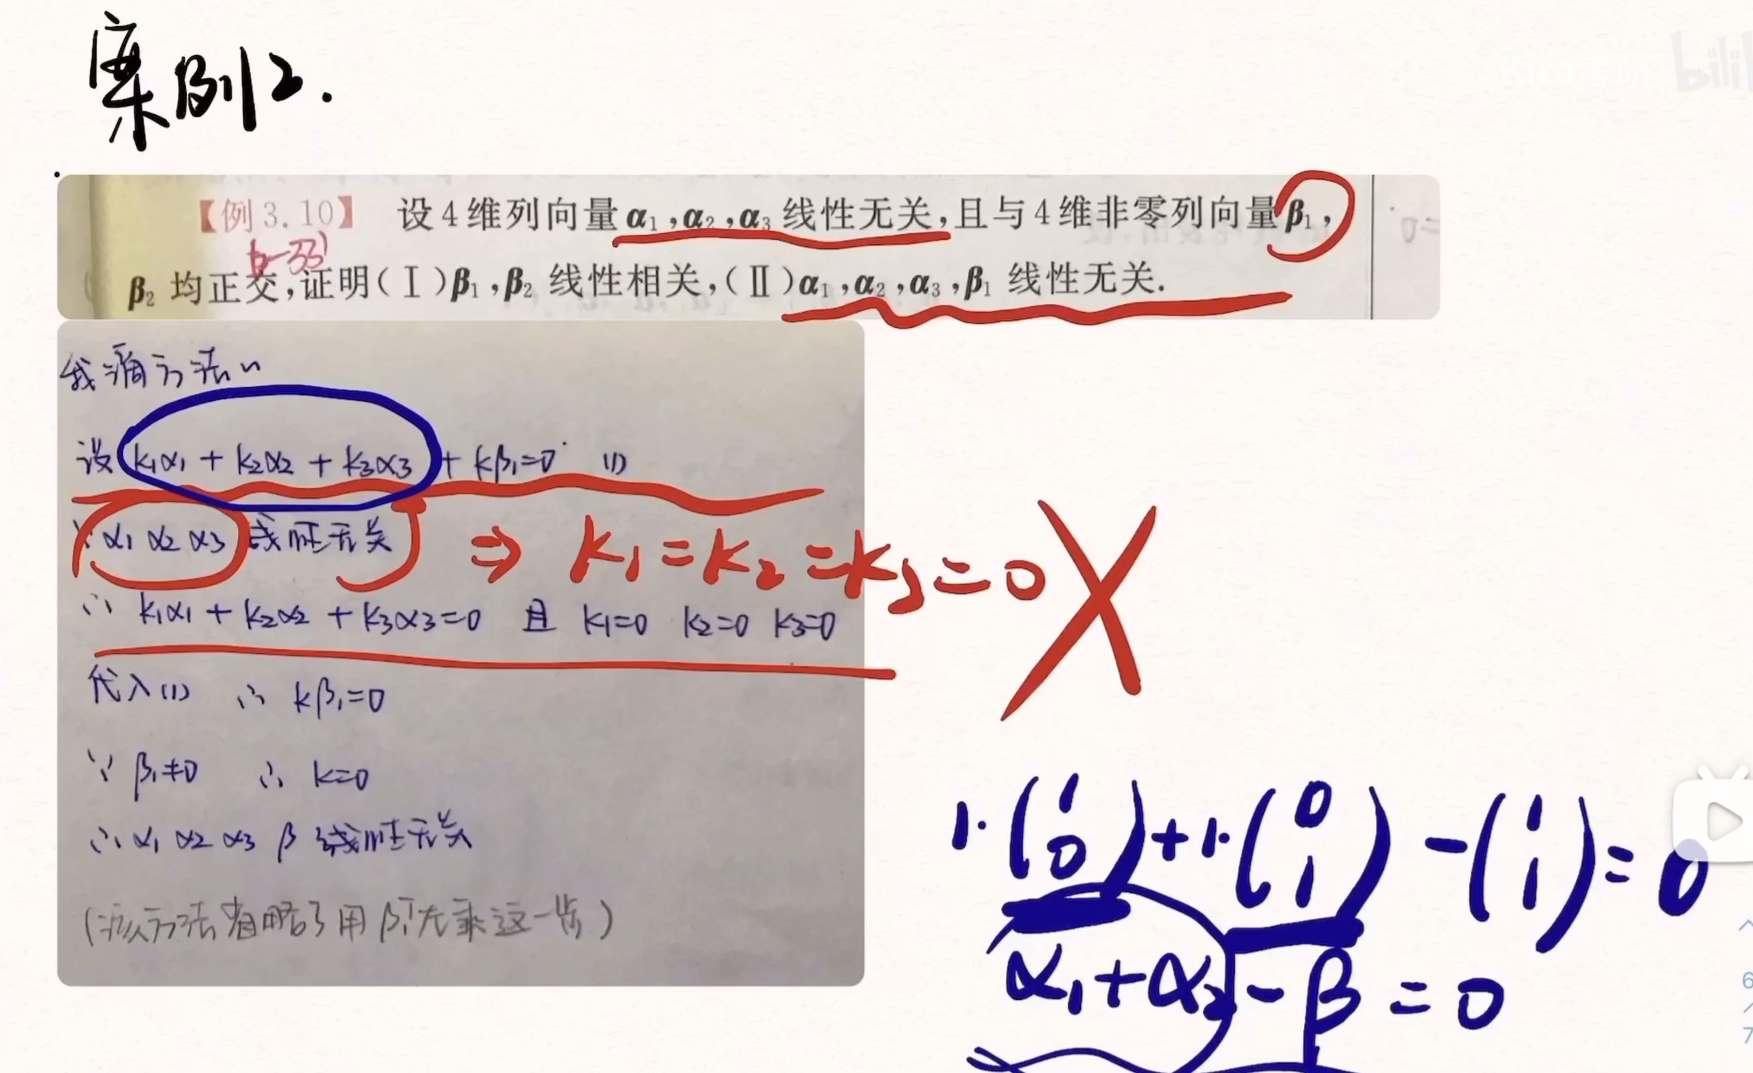 案例2.
【例3.10】 设4维列向量α₁,α₂,α₃线性无关,且与4维非零列向量β₁,
β₂ 均正交,证明(Ⅰ)β₁,β₂ 线性相关,(Ⅱ)α₁,α₂,α₃,β₁ 线性无关.
我滴方法
设 k₁α₁ + k₂α₂ + k₃α₃ + kβ₁=0 (1)
∵ α₁ α₂ α₃ 线性无关 ⇒ k₁=k₂=k₃=0
∴ k₁α₁ + k₂α₂ + k₃α₃=0 且 k₁=0 k₂=0 k₃=0
代入(1) ∴ kβ₁=0
∵ β₁≠0 ∴ k=0
∴ α₁ α₂ α₃ β 线性无关
(该方法省略了用β₁ᵀ左乘这一步)
1·(1 0)+1·(0 1)-(1 1)=0
α₁+α₂-β=0
bili